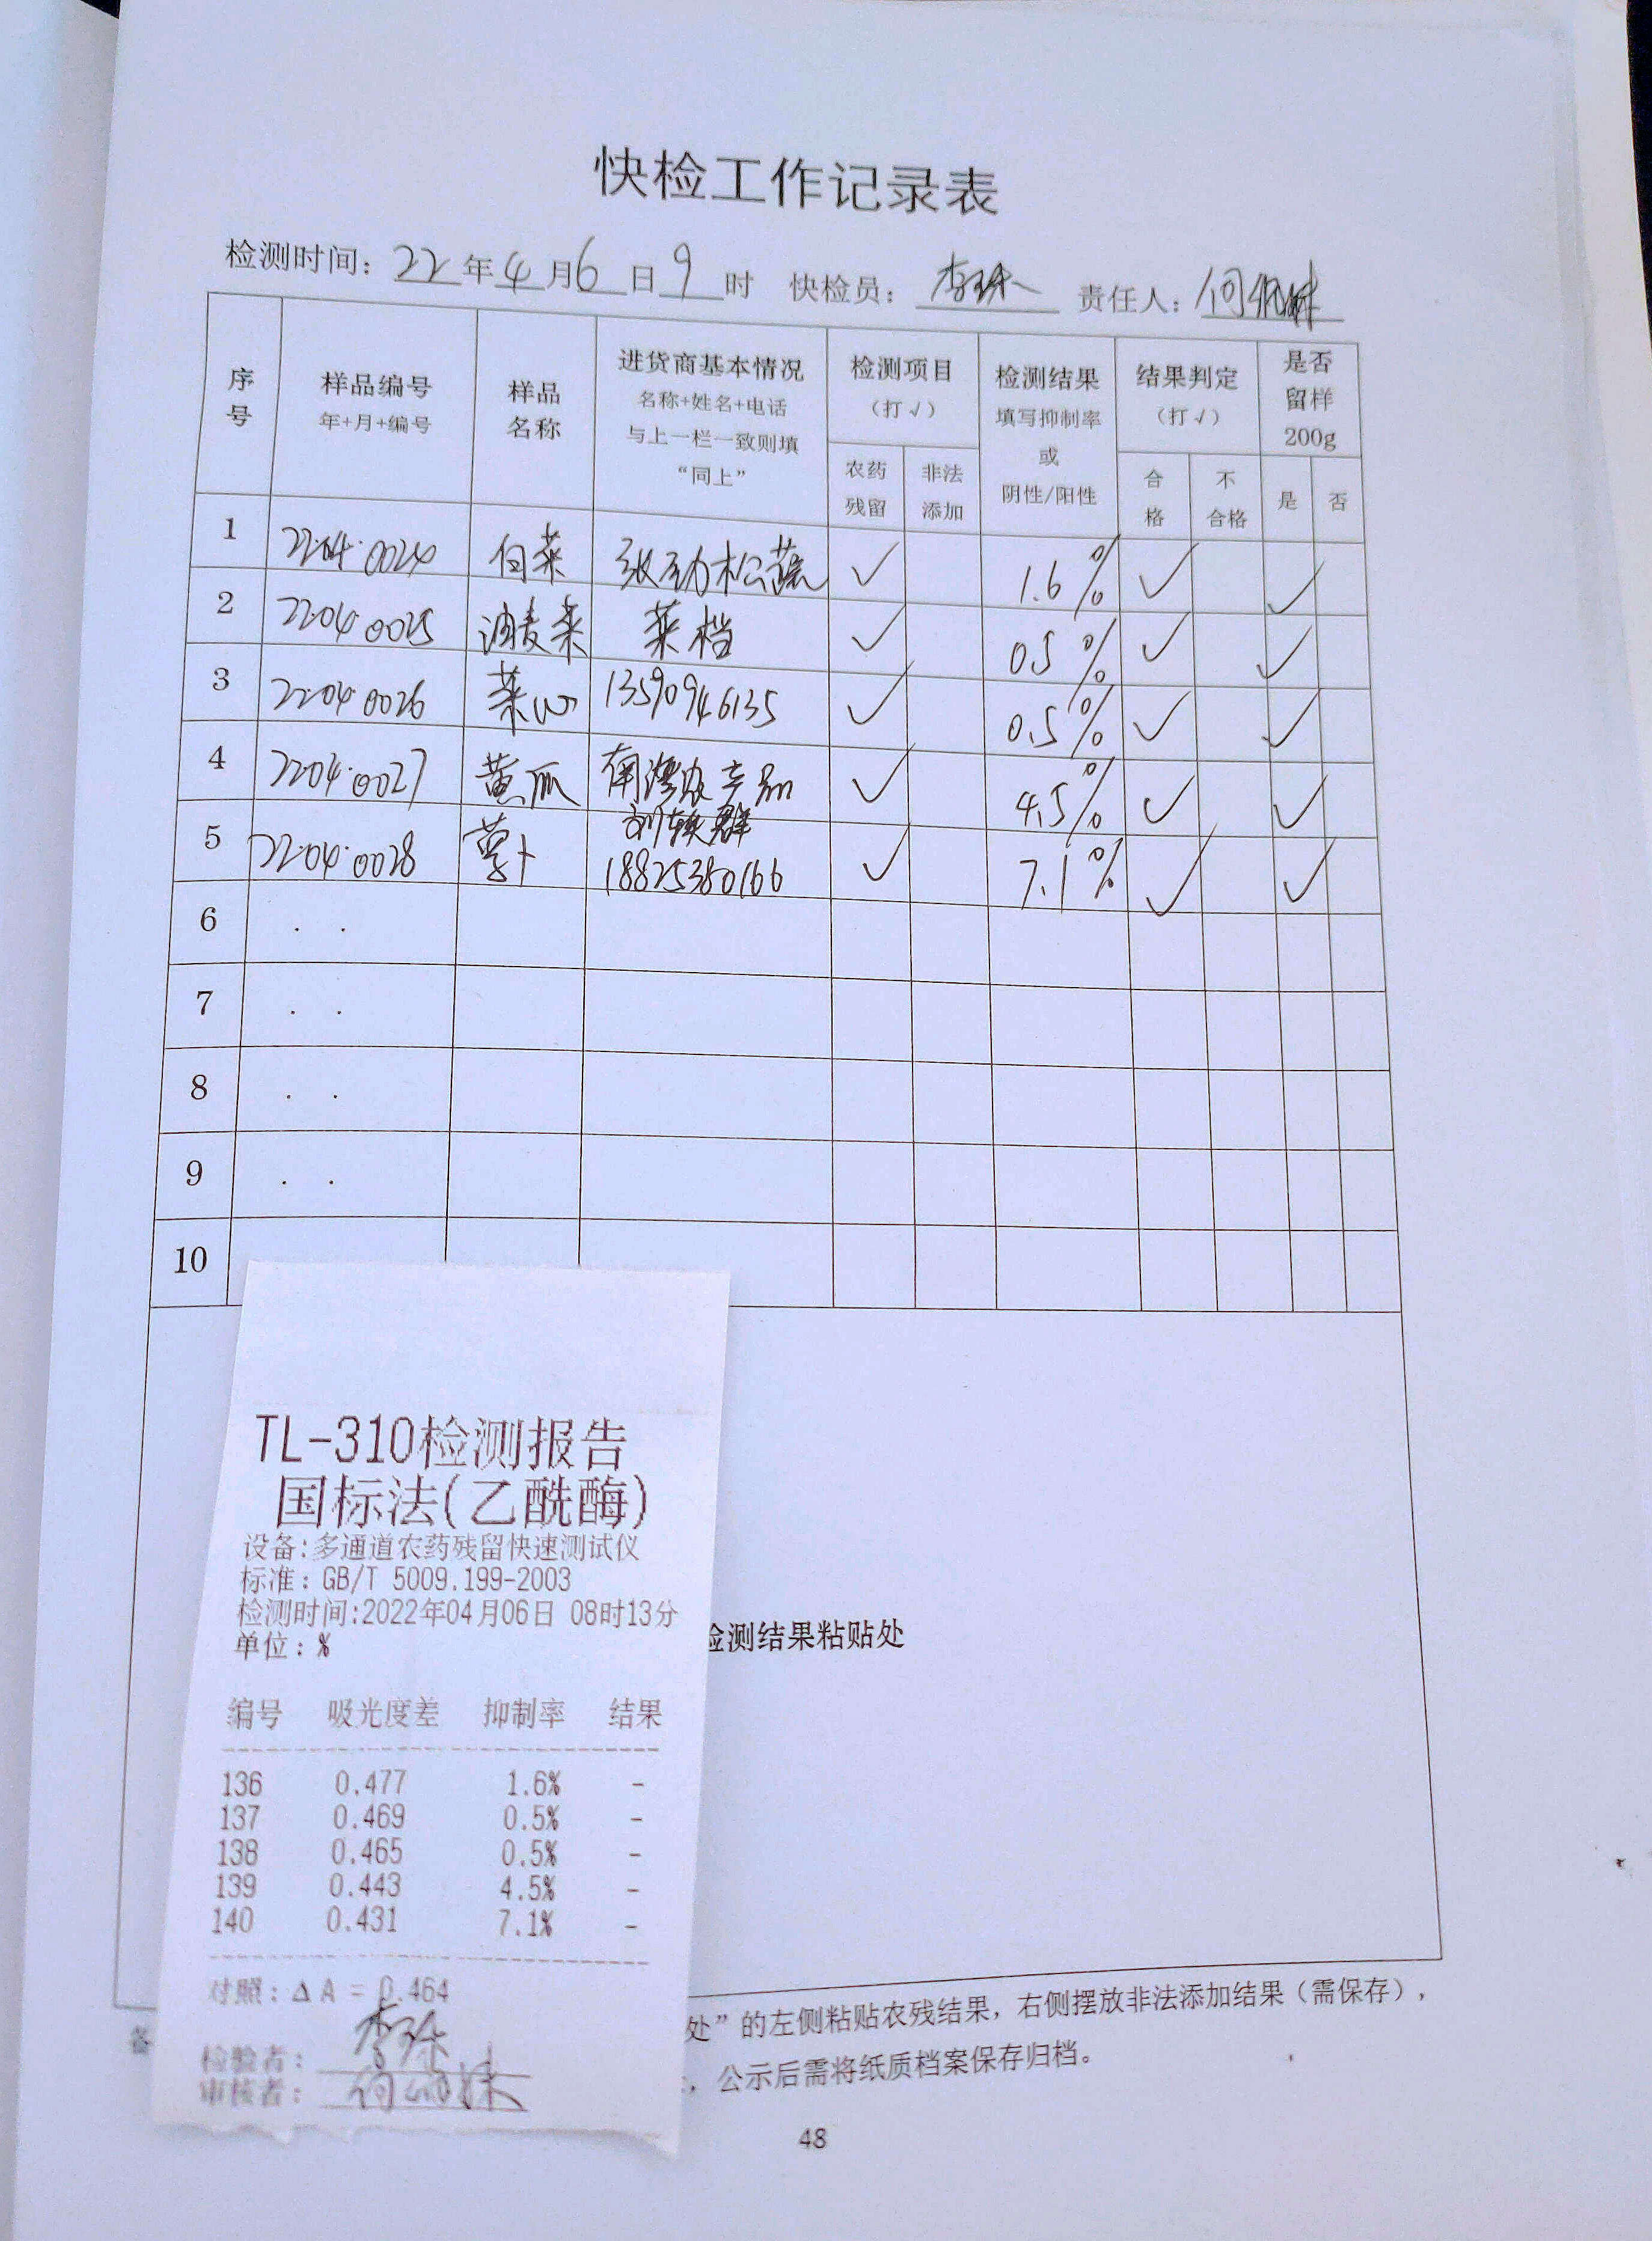 快检工作记录表
检测时间：22年4月6日9时 快检员：李珠 责任人：何
序号 样品编号 年+月+编号 样品名称 进货商基本情况 名称+姓名+电话 与上一栏一致则填“同上” 检测项目（打√） 检测结果 填写抑制率或阴性/阳性 结果判定（打√） 是否留样200g
农药残留 非法添加 合格 不合格 是 否
1 2204·0024 白菜 张劲松蔬 ✓ 1.6% ✓ ✓
2 2204·0025 油麦菜 菜档 ✓ 0.5% ✓ ✓
3 2204·0026 菜心 13590946135 ✓ 0.5% ✓ ✓
4 2204·0027 黄瓜 南湾农产品 ✓ 4.5% ✓ ✓
刘 群
5 2204·0028 萝卜 18825380166 ✓ 7.1% ✓ ✓
6 . .
7 . .
8 . .
9 . .
10
TL-310检测报告
国标法(乙酰酶)
设备:多通道农药残留快速测试仪
标准：GB/T 5009.199-2003
检测时间:2022年04月06日 08时13分
单位：%
检测结果粘贴处
编号 吸光度差 抑制率 结果
136 0.477 1.6% -
137 0.469 0.5% -
138 0.465 0.5% -
139 0.443 4.5% -
140 0.431 7.1% -
对照：Δ A = 0.464
检验者：李珠
审核者：何
备
处”的左侧粘贴农残结果，右侧摆放非法添加结果（需保存），
，公示后需将纸质档案保存归档。
48